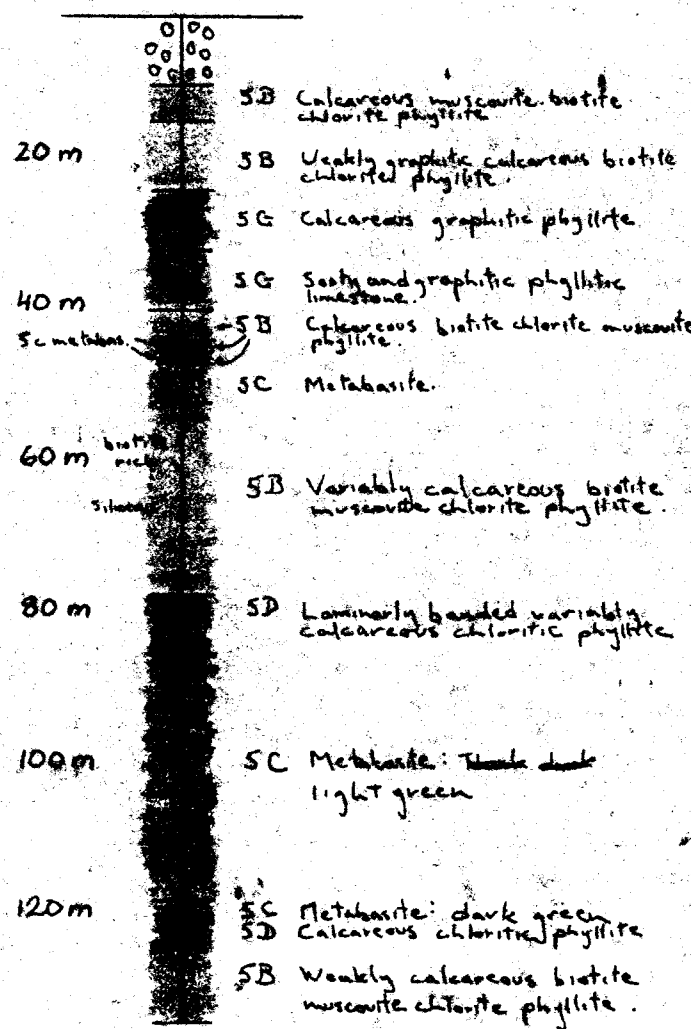 5B Calcareous muscovite biotite
chlorite phyllite
20 m
5B Weakly graphitic calcareous biotite
chlorited phyllite.
5G Calcareous graphitic phyllite
5G Sooty and graphitic phyllitic
limestone.
40 m
5B Calcareous biotite chlorite muscovite
phyllite.
5c metabas.
5C Metabasite.
60 m
biotite
rich
5B Variably calcareous biotite
muscovite chlorite phyllite.
80 m
5D Laminarly banded variably
calcareous chloritic phyllite
100 m
5C Metabasite:
light green
120 m
5C Metabasite: dark green
5D Calcareous chloritic phyllite
5B Weakly calcareous biotite
muscovite chlorite phyllite.